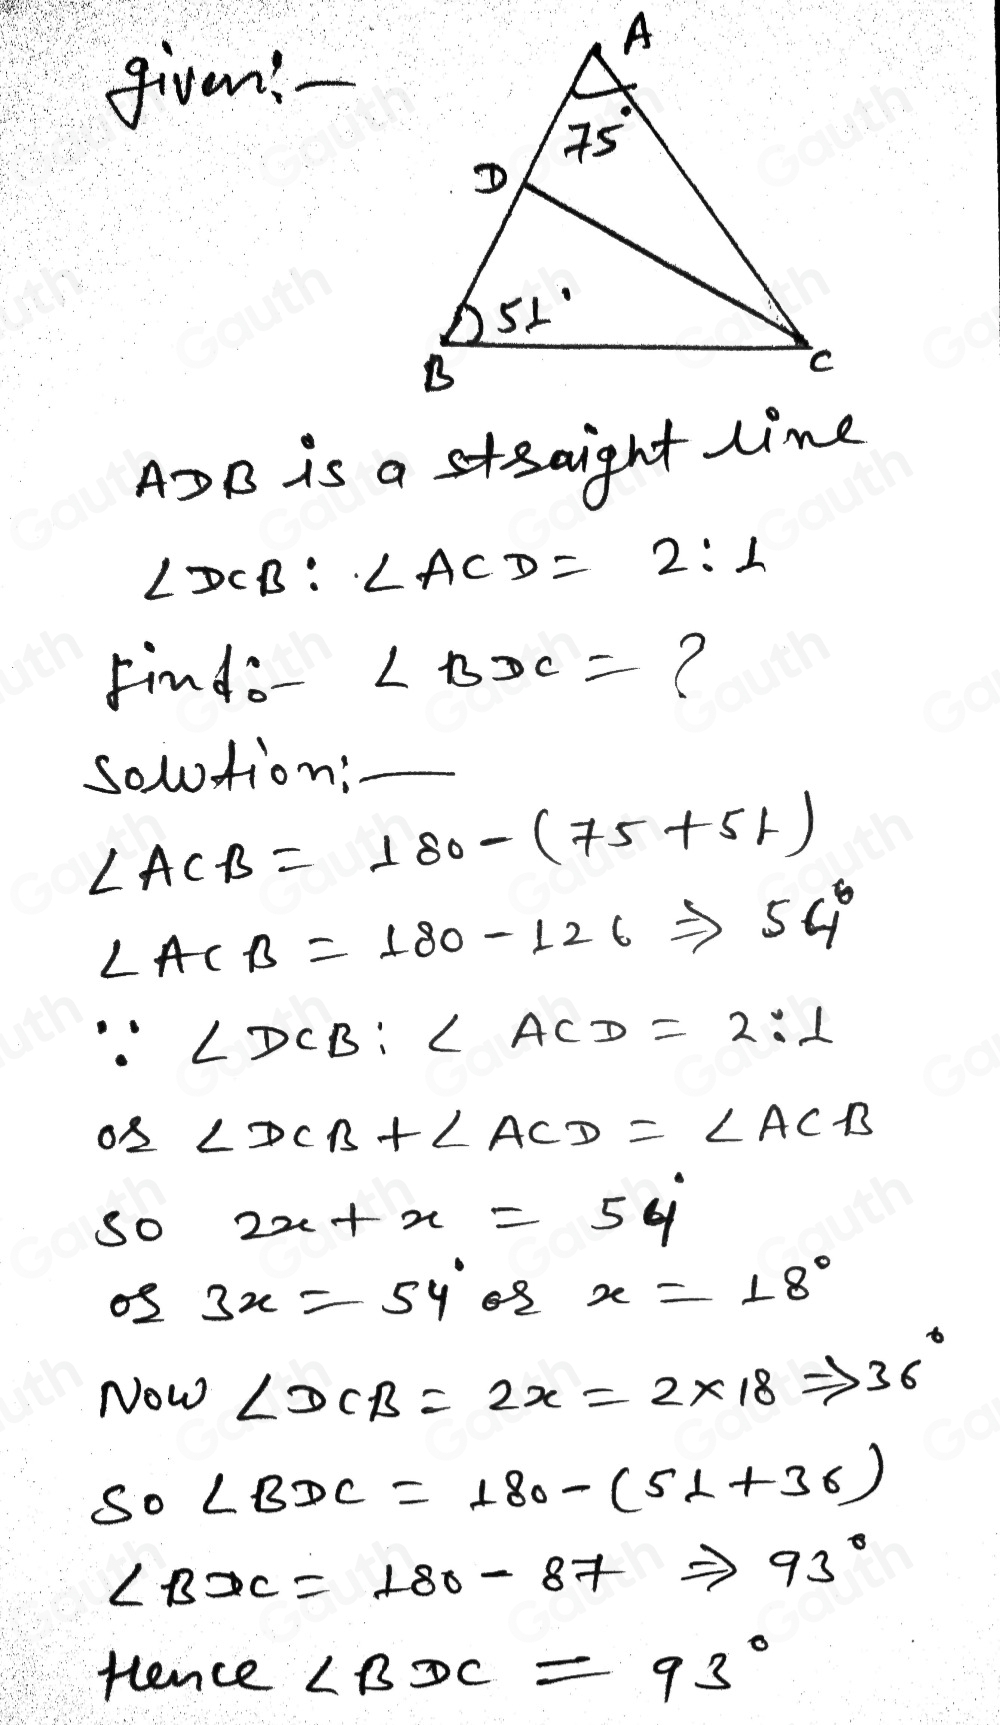 given:-
A
75°
D
51°
B
C
ADB is a straight line
∠DCB : ∠ACD = 2:1
Find:- ∠BDC = ?
Solution:—
∠ACB = 180-(75+51)
∠ACB = 180-126 ⇒ 54°
∵ ∠DCB : ∠ACD = 2:1
or ∠DCB + ∠ACD = ∠ACB
so 2x + x = 54°
or 3x = 54° or x = 18°
Now ∠DCB = 2x = 2×18 ⇒ 36°
So ∠BDC = 180-(51+36)
∠BDC = 180-87 ⇒ 93°
Hence ∠BDC = 93°
Gauth